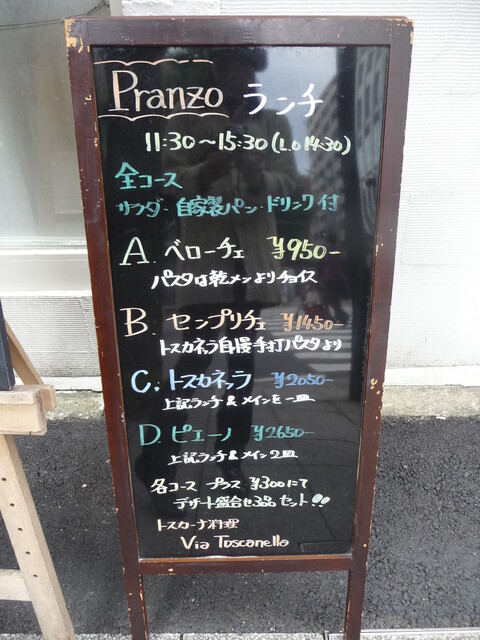 Pranzo ランチ
11:30～15:30(L.O 14:30)
全コース
サラダ・自家製パン・ドリンク付
A. ベローチェ ¥950-
パスタは乾メンよりチョイス
B. センプリチェ ¥1450-
トスカネッラ自慢手打パスタより
C. トスカネッラ ¥2050-
上記ランチ & メインを一皿
D. ピエーノ ¥2650-
上記ランチ & メイン2皿
各コース プラス ¥300にて
デザート盛合せ3品セット!!
トスカーナ料理
Via Toscanella